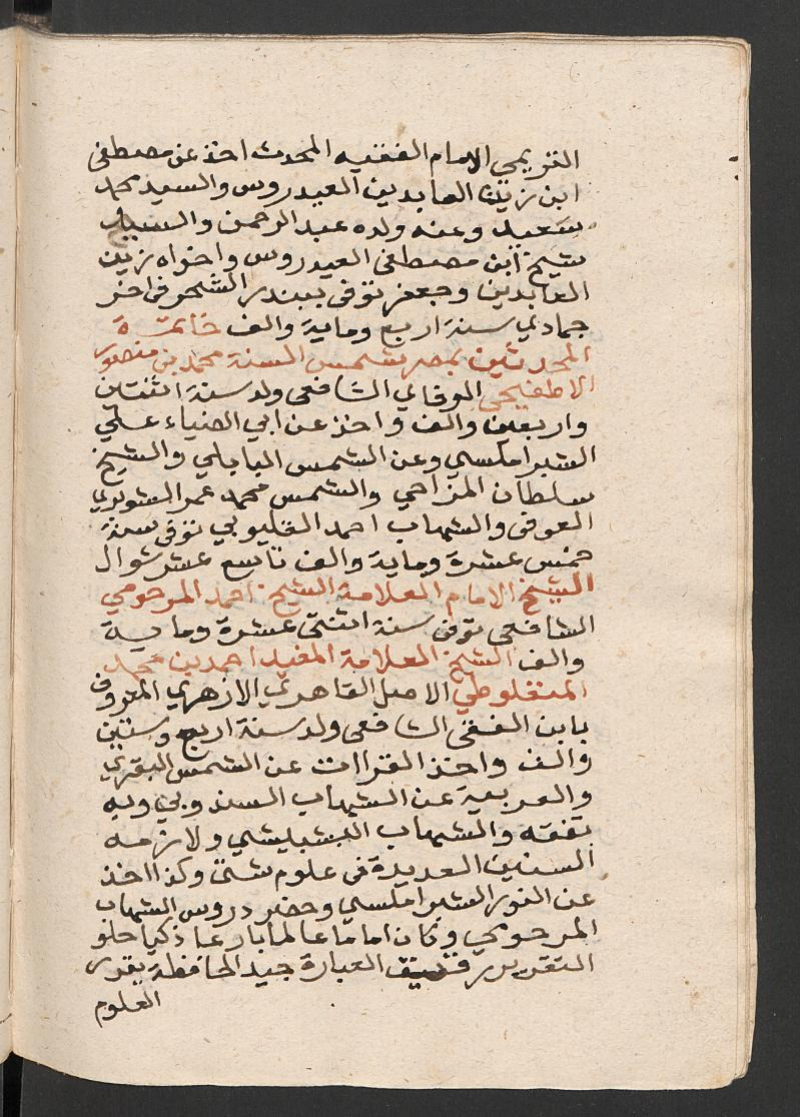 التريمي الامام الفقيه المحدث اخذ عن مصطفى
ابن زين العابدين العيدروس والسيد محمد
سعيد وعنه ولده عبد الرحمن والسيد
شيخ ابن مصطفى العيدروس واخواه زين
العابدين وجعفر توفى ببندر الشحر فى اخر
جمادي سنة اربع وماية والف خاتمة
المحدثين بمصر شمس السنة محمد بن منصور
الاطفيحي الوفاي الشافعى ولد سنة اثنتين
واربعين والف واخذ عن ابي الضياء علي
الشبراملسي وعن الشمس البابلي والشيخ
سلطان المزاحي والشمس محمد عمر الشوبري
العوفى والشهاب احمد القليوبي توفى سنة
خمس عشرة وماية والف تاسع عشر شوال
الشيخ الامام العلامة الشيخ احمد المرحومي
الشافعى توفى سنة اثنتى عشرة وماية
والف الشيخ العلامة المفيد احمد بن محمد
المنفلوطي الاصل القاهري الازهري المعروف
بابن الفقى الشافعى ولد سنة اربع وستين
والف واخذ القراات عن الشمس البقري
والعربية عن الشهاب السندوبي وبه
تفقه والشهاب البشبيشي ولازمه
السنين العديدة فى علوم شتى وكذا اخذ
عن النور الشبراملسي وحضر دروس الشهاب
المرحومي وكان اماما عالما بارعا ذكيا حلو
التقرير رقيق العبارة جيد الحافظة يقرر
العلوم